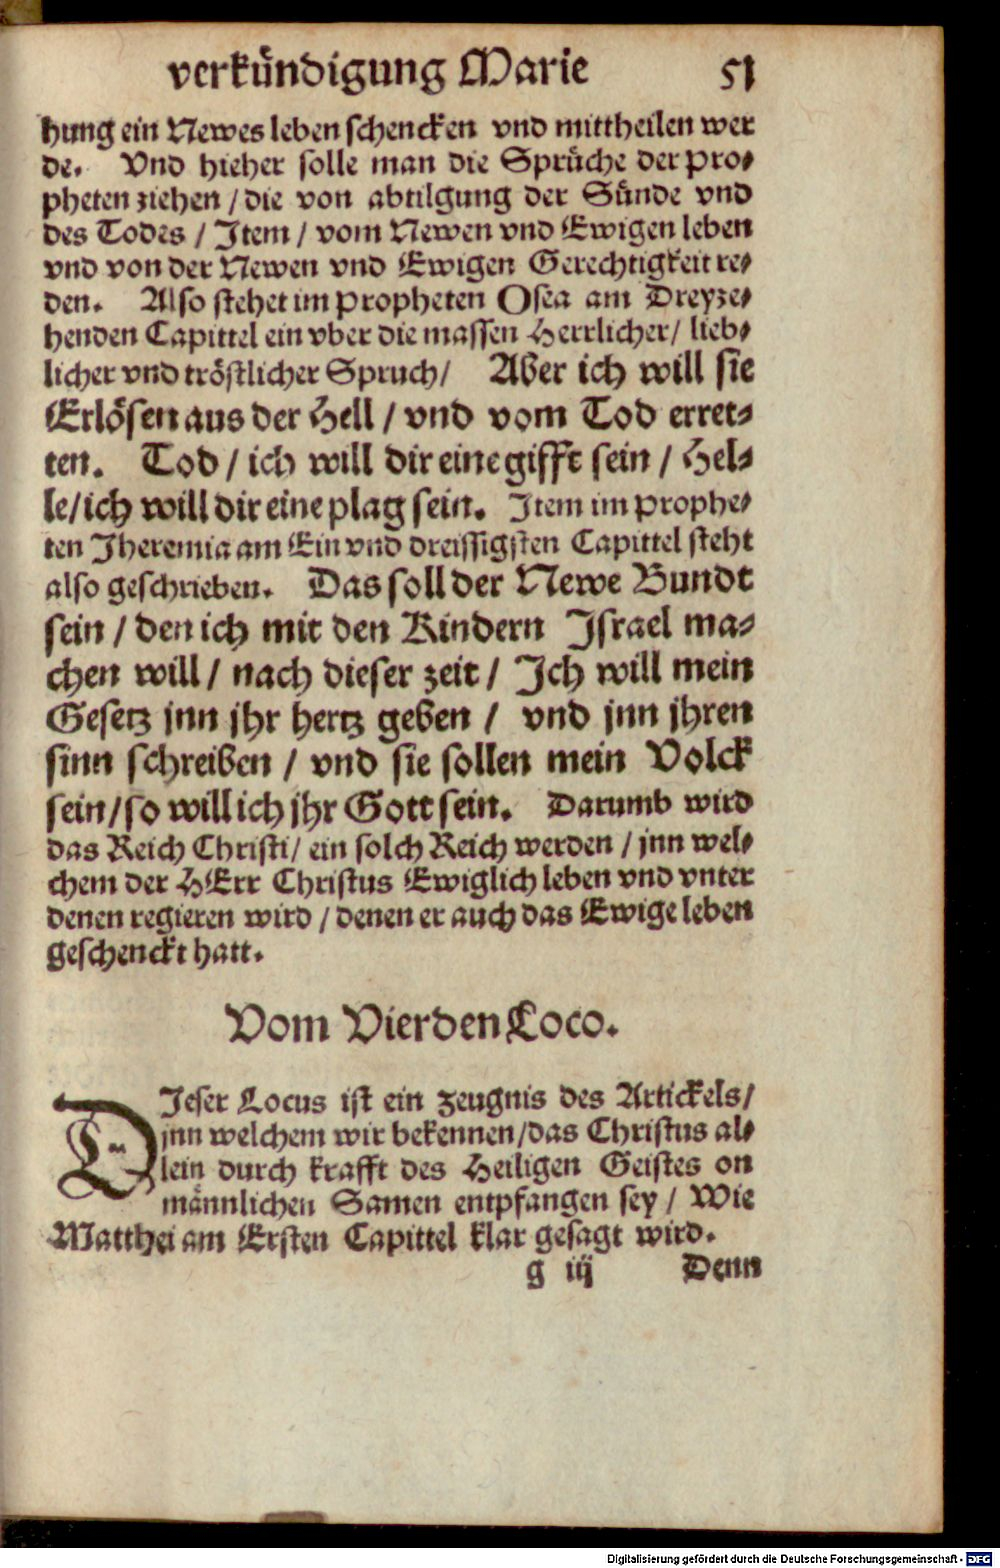 verkündigung Marie 51
hung ein Newes leben schencken vnd mittheilen wer
de. Vnd hieher solle man die Sprüche der Pro⸗
pheten ziehen / die von abtilgung der Sünde vnd
des Todes / Item / vom Newen vnd Ewigen leben
vnd von der Newen vnd Ewigen Gerechtigkeit re⸗
den. Also stehet im Propheten Osea am Dreyze⸗
henden Capittel ein vber die massen Herrlicher / lieb⸗
licher vnd tröstlicher Spruch / Aber ich will sie
Erlösen aus der Hell / vnd vom Tod erret⸗
ten. Tod / ich will dir eine gifft sein / Hel⸗
le / ich will dir eine plag sein. Item im Prophe⸗
ten Jheremia am Ein vnd dreissigsten Capittel steht
also geschrieben. Das soll der Newe Bundt
sein / den ich mit den Kindern Israel ma⸗
chen will / nach dieser zeit / Ich will mein
Gesetz jnn jhr hertz geben / vnd jnn jhren
sinn schreiben / vnd sie sollen mein Volck
sein / so will ich jhr Gott sein. Darumb wird
das Reich Christi / ein solch Reich werden / jnn wel⸗
chem der HErr Christus Ewiglich leben vnd vnter
denen regieren wird / denen er auch das Ewige leben
geschenckt hatt.
Vom Vierden Loco.
DIeser Locus ist ein zeugnis des Artickels /
jnn welchem wir bekennen / das Christus al⸗
lein durch krafft des Heiligen Geistes on
männlichen Samen entpfangen sey / Wie
Matthei am Ersten Capittel klar gesagt wird.
g iij Denn
Digitalisierung gefördert durch die Deutsche Forschungsgemeinschaft - DFG